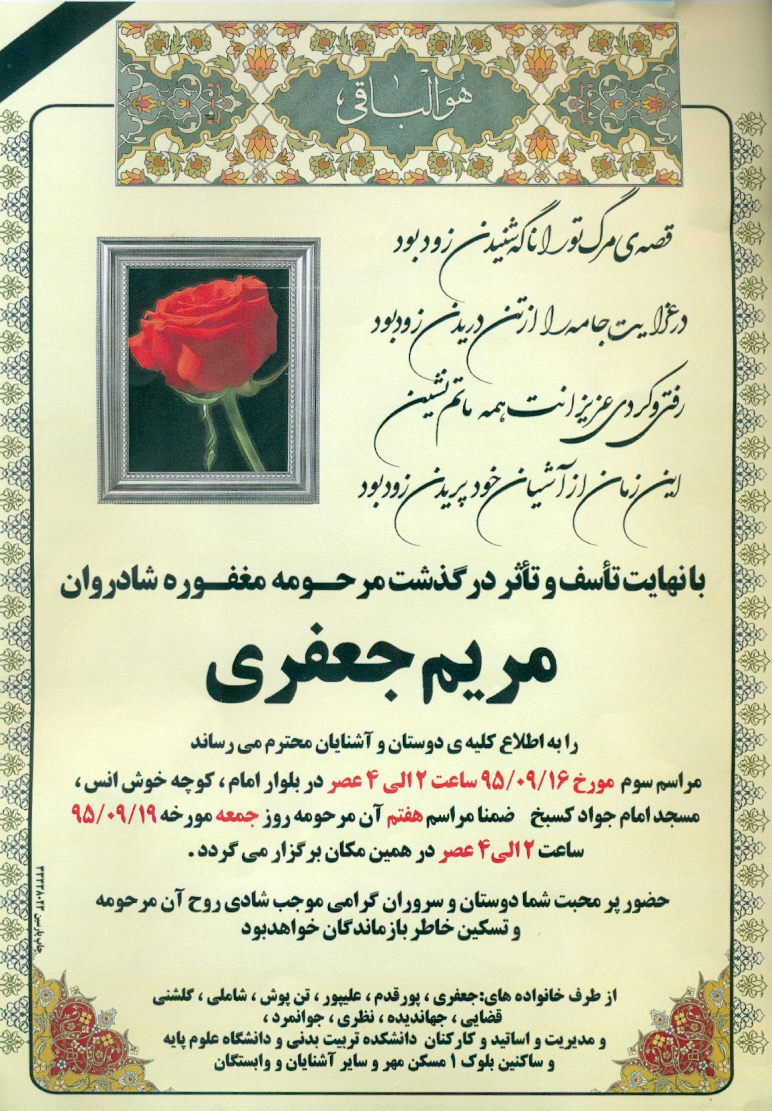 هوالباقی
قصه‌ی مرگ تو را ناگه شنیدن زود بود
در عزایت جامه را از تن دریدن زود بود
رفتی و کردی عزیزانت همه ماتم نشین
این زمان از آشیان خود پریدن زود بود
با نهایت تأسف و تأثر درگذشت مرحومه مغفوره شادروان
مریم جعفری
را به اطلاع کلیه ی دوستان و آشنایان محترم می رساند
مراسم سوم مورخ ۹۵/۰۹/۱۶ ساعت ۲ الی ۴ عصر در بلوار امام ، کوچه خوش انس ،
مسجد امام جواد کسبخ ضمنا مراسم هفتم آن مرحومه روز جمعه مورخه ۹۵/۰۹/۱۹
ساعت ۲ الی ۴ عصر در همین مکان برگزار می گردد .
حضور پر محبت شما دوستان و سروران گرامی موجب شادی روح آن مرحومه
و تسکین خاطر بازماندگان خواهدبود
از طرف خانواده های:جعفری ، پورقدم ، علیپور ، تن پوش ، شاملی ، گلشنی
قضایی ، جهاندیده ، نظری ، جوانمرد ،
و مدیریت و اساتید و کارکنان دانشکده تربیت بدنی و دانشگاه علوم پایه
و ساکنین بلوک ۱ مسکن مهر و سایر آشنایان و وابستگان